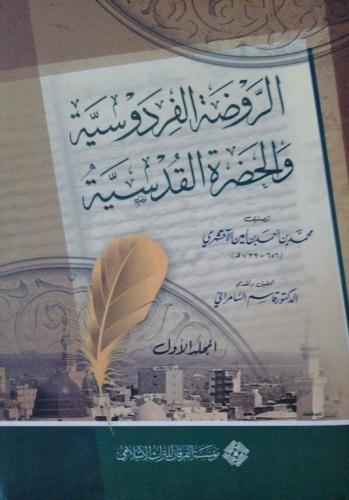 الرَّوْضَةُ الفِرْدَوْسِيَّة
وَالحَضْرَةُ القُدْسِيَّة
تصنيف
محمد بن أحمد بن أمين الآقشهري
(٦٥٦ - ٧٣٩هـ)
تحقيق وتقديم
الدكتور قاسم السامرائي
المجلد الأول
مؤسسة الفرقان للتراث الإسلامي